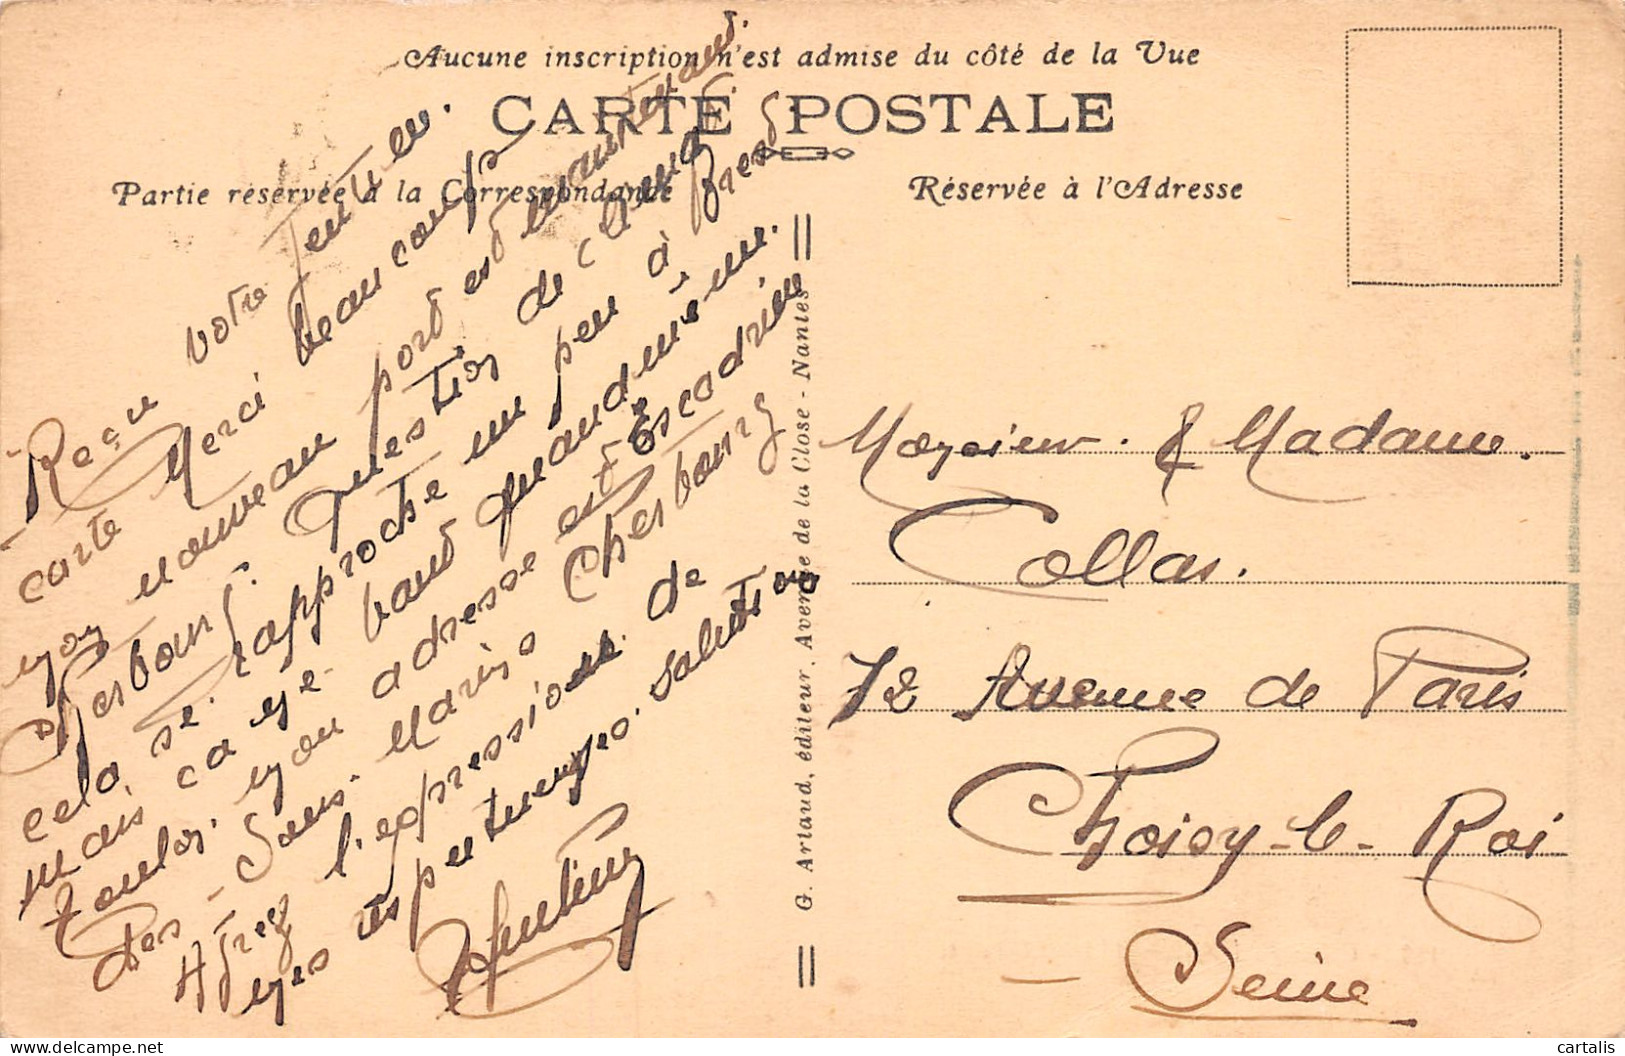 Aucune inscription n'est admise du côté de la Vue
CARTE POSTALE
Partie réservée à la Correspondance
Réservée à l'Adresse
Reçu votre gentille
carte Merci beaucoup
mon nouveau port est maintenant
Cherbourg. Question de climat
cela se rapproche un peu à Brest
mais ça ne vaut quand même
Toulon. mon adresse est Escadrille
des Sous-Marins Cherbourg
Agréez l'expression de
mes respectueuses salutations
G. Artaud, éditeur, Avenue de la Close - Nantes
Monsieur & Madame
Collas.
72 Avenue de Paris
Choisy-le-Roi
Seine
cartalis